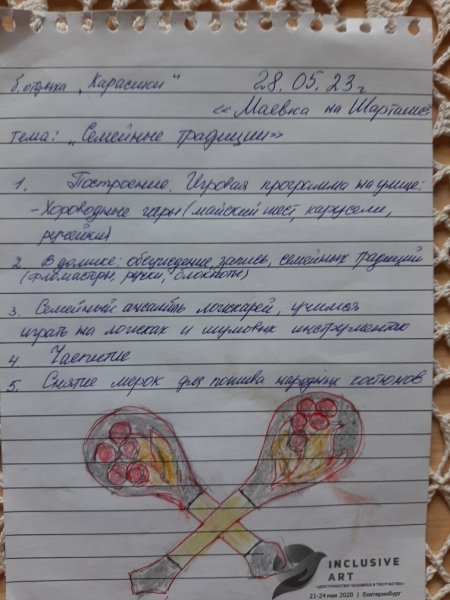 б.отдыха „Карасики"
28.05.23г
«Маевка на Шарташе»
тема: „Семейные традиции»
1. Построение. Игровая программа на улице:
- Хороводные игры (майский шест, карусели,
ручейки)
2. В домике: обсуждение, запись, семейных традиций
(фломастеры, ручки, блокноты)
3. Семейный ансамбль ложкарей, учимся
играть на ложках и шумовых инструментах
4. Чаепитие
5. Снятие мерок для пошива народных костюмов
INCLUSIVE
ART
«ДОСТОИНСТВО ЧЕЛОВЕКА В ТВОРЧЕСТВЕ»
21-24 мая 2020 | Екатеринбург